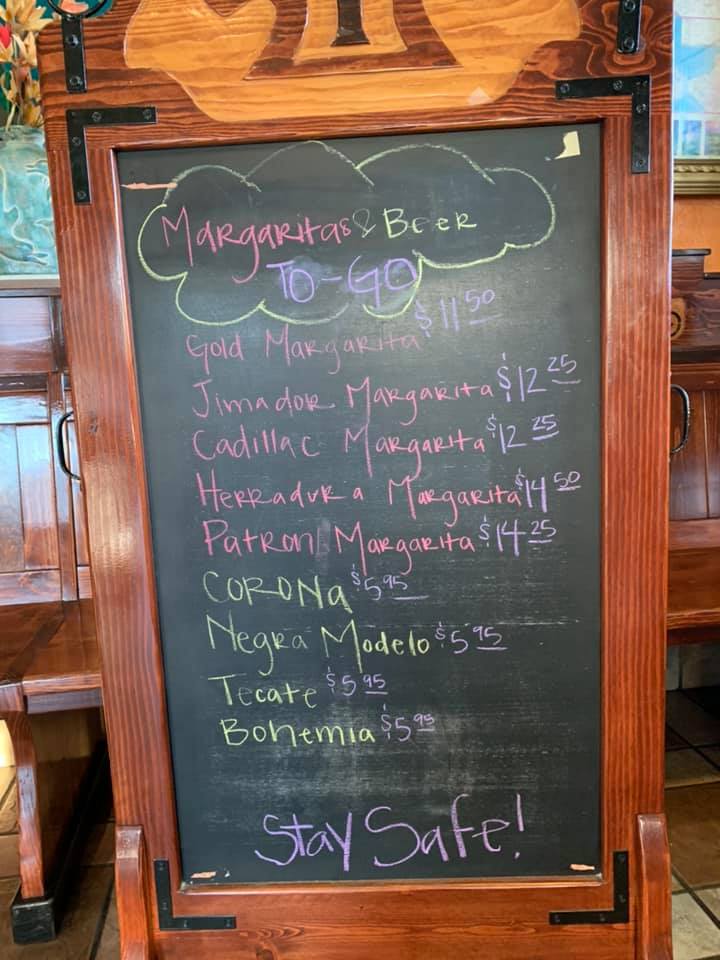 Margaritas & Beer
TO-GO
Gold Margarita $11 50
Jimador Margarita $12 25
Cadillac Margarita $12 25
Herradura Margarita $14 50
Patron Margarita $14 25
CORONA $5 95
Negra Modelo $5 95
Tecate $5 95
Bohemia $5 95
Stay Safe!